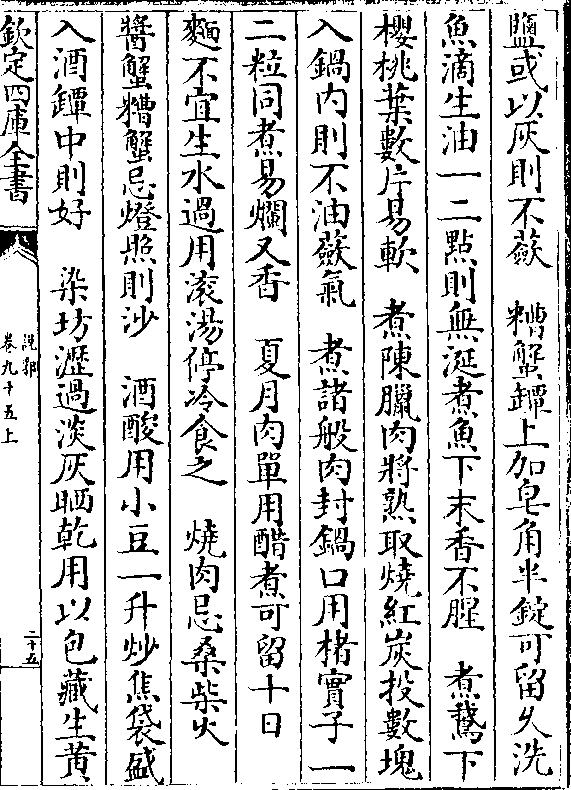 鹽或以灰則不蘞　糟蟹罈上加皂角半錠可留久洗
魚滴生油一二點則無涎煮魚下末香不腥　煮鵞下
櫻桃葉數片易軟　煮陳臘肉將熟取燒紅炭投數塊
入鍋内則不油蘞氣　煮諸般肉封鍋口用楮實子一
二粒同煮易爛又香　夏月肉單用醋煮可留十日
麵不宜生水過用滚湯停冷食之　燒肉忌桑柴火
醬蟹糟蟹忌燈照則沙　酒酸用小豆一升炒焦袋盛
入酒罈中則好　染坊瀝過淡灰晒乾用以包藏生黄
欽定四庫全書
説郛
卷九十五上
二十五